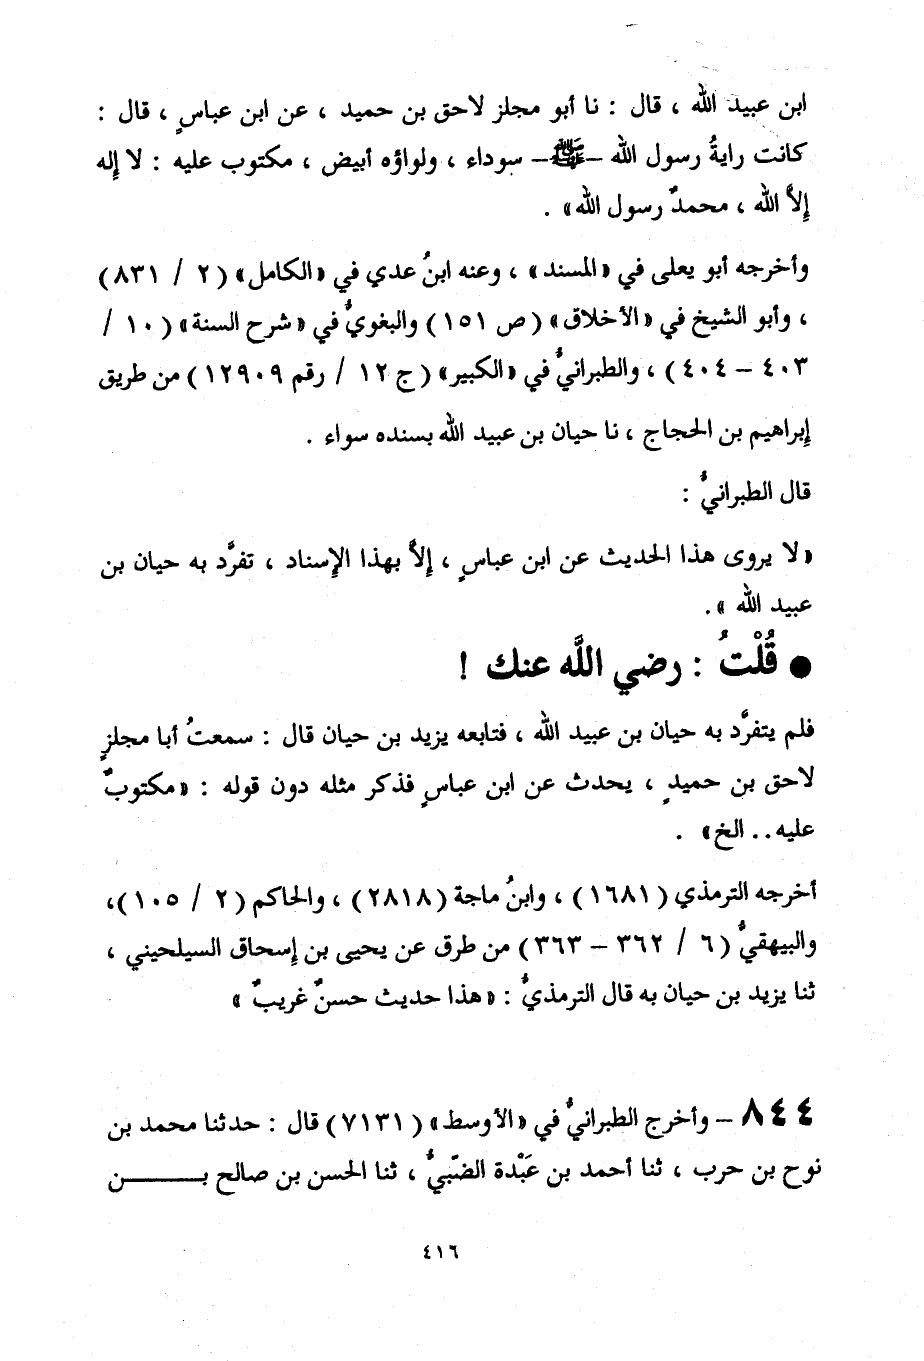 ابن عبيد الله ، قال : نا أبو مجلز لاحق بن حميد ، عن ابن عباسٍ ، قال :
كانت رايةُ رسول الله –ﷺ– سوداء ، ولواؤه أبيض ، مكتوب عليه : لا إله
إلاَّ الله ، محمدٌ رسول الله» .
وأخرجه أبو يعلى في «المسند» ، وعنه ابنُ عدي في «الكامل» (٢ / ٨٣١)
، وأبو الشيخ في «الأخلاق» (ص ١٥١) والبغويُّ في «شرح السنة» (١٠ /
٤٠٣ – ٤٠٤) ، والطبرانيُّ في «الكبير» (ج ١٢ / رقم ١٢٩٠٩) من طريق
إبراهيم بن الحجاج ، نا حيان بن عبيد الله بسنده سواء .
قال الطبرانيُّ :
«لا يروى هذا الحديث عن ابن عباسٍ ، إلاَّ بهذا الإسناد ، تفرَّد به حيان بن
عبيد الله » .
● قُلْتُ : رضي اللَّه عنك !
فلم يتفرَّد به حيان بن عبيد الله ، فتابعه يزيد بن حيان قال : سمعتُ أبا مجلزٍ
لاحق بن حميدٍ ، يحدث عن ابن عباسٍ فذكر مثله دون قوله : «مكتوبٌ
عليه.. الخ» .
أخرجه الترمذي (١٦٨١) ، وابنُ ماجة (٢٨١٨) ، والحاكم (٢ / ١٠٥)،
والبيهقيُّ (٦ / ٣٦٢ – ٣٦٣) من طرق عن يحيى بن إسحاق السيلحيني ،
ثنا يزيد بن حيان به قال الترمذيُّ : «هذا حديث حسنٌ غريبٌ »
٨٤٤ – وأخرج الطبرانيُّ في «الأوسط» (٧١٣١) قال : حدثنا محمد بن
نوح بن حرب ، ثنا أحمد بن عَبْدة الضّبّيُّ ، ثنا الحسن بن صالح بـــــــن
٤١٦